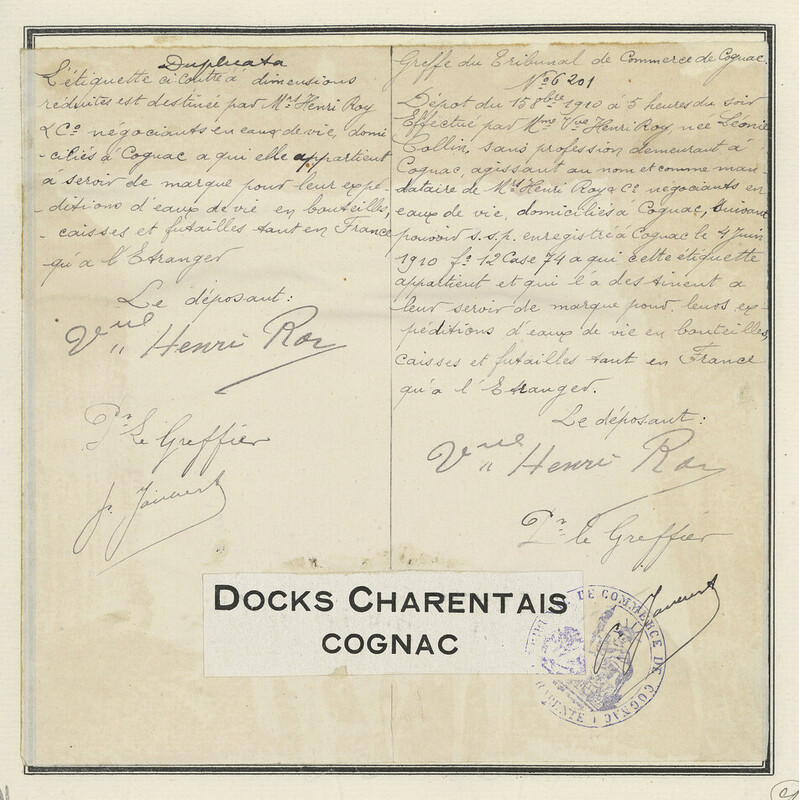 Duplicata
L'étiquette ci contre à dimensions
réduites est destinée par Mrs Henri Roy
& Co négociants en eaux de vie, domi
-ciliés à Cognac a qui elle appartient
à servir de marque pour leur expé
-ditions d'eaux de vie en bouteilles,
caisses et futailles tant en France
qu'a l'Etranger
Le déposant:
Vve Henri Roy
Pr Le Greffier
Greffe du Tribunal de Commerce de Cognac.
No 6201
Dépot du 15 8bre 1910 à 5 heures du soir
Effectué par Mme Vve Henri Roy, née Léonie
Collin, sans profession demeurant à
Cognac, agissant au nom et comme man
-dataire de Mrs Henri Roy & Co négociants en
eaux de vie, domiciliés à Cognac, suivant
pouvoir s.s.p. enregistré à Cognac le 4 Juin
1910 fo 12 Case 74 a qui cette étiquette
appartient et qui l'a destinent a
leur servir de marque pour leurs ex-
péditions d'eaux de vie en bouteilles,
caisses et futailles tant en France
qu'a l'Etranger.
Le déposant:
Vve Henri Roy
Pr le Greffier
DOCKS CHARENTAIS
COGNAC
DE COMMERCE DE COGNAC